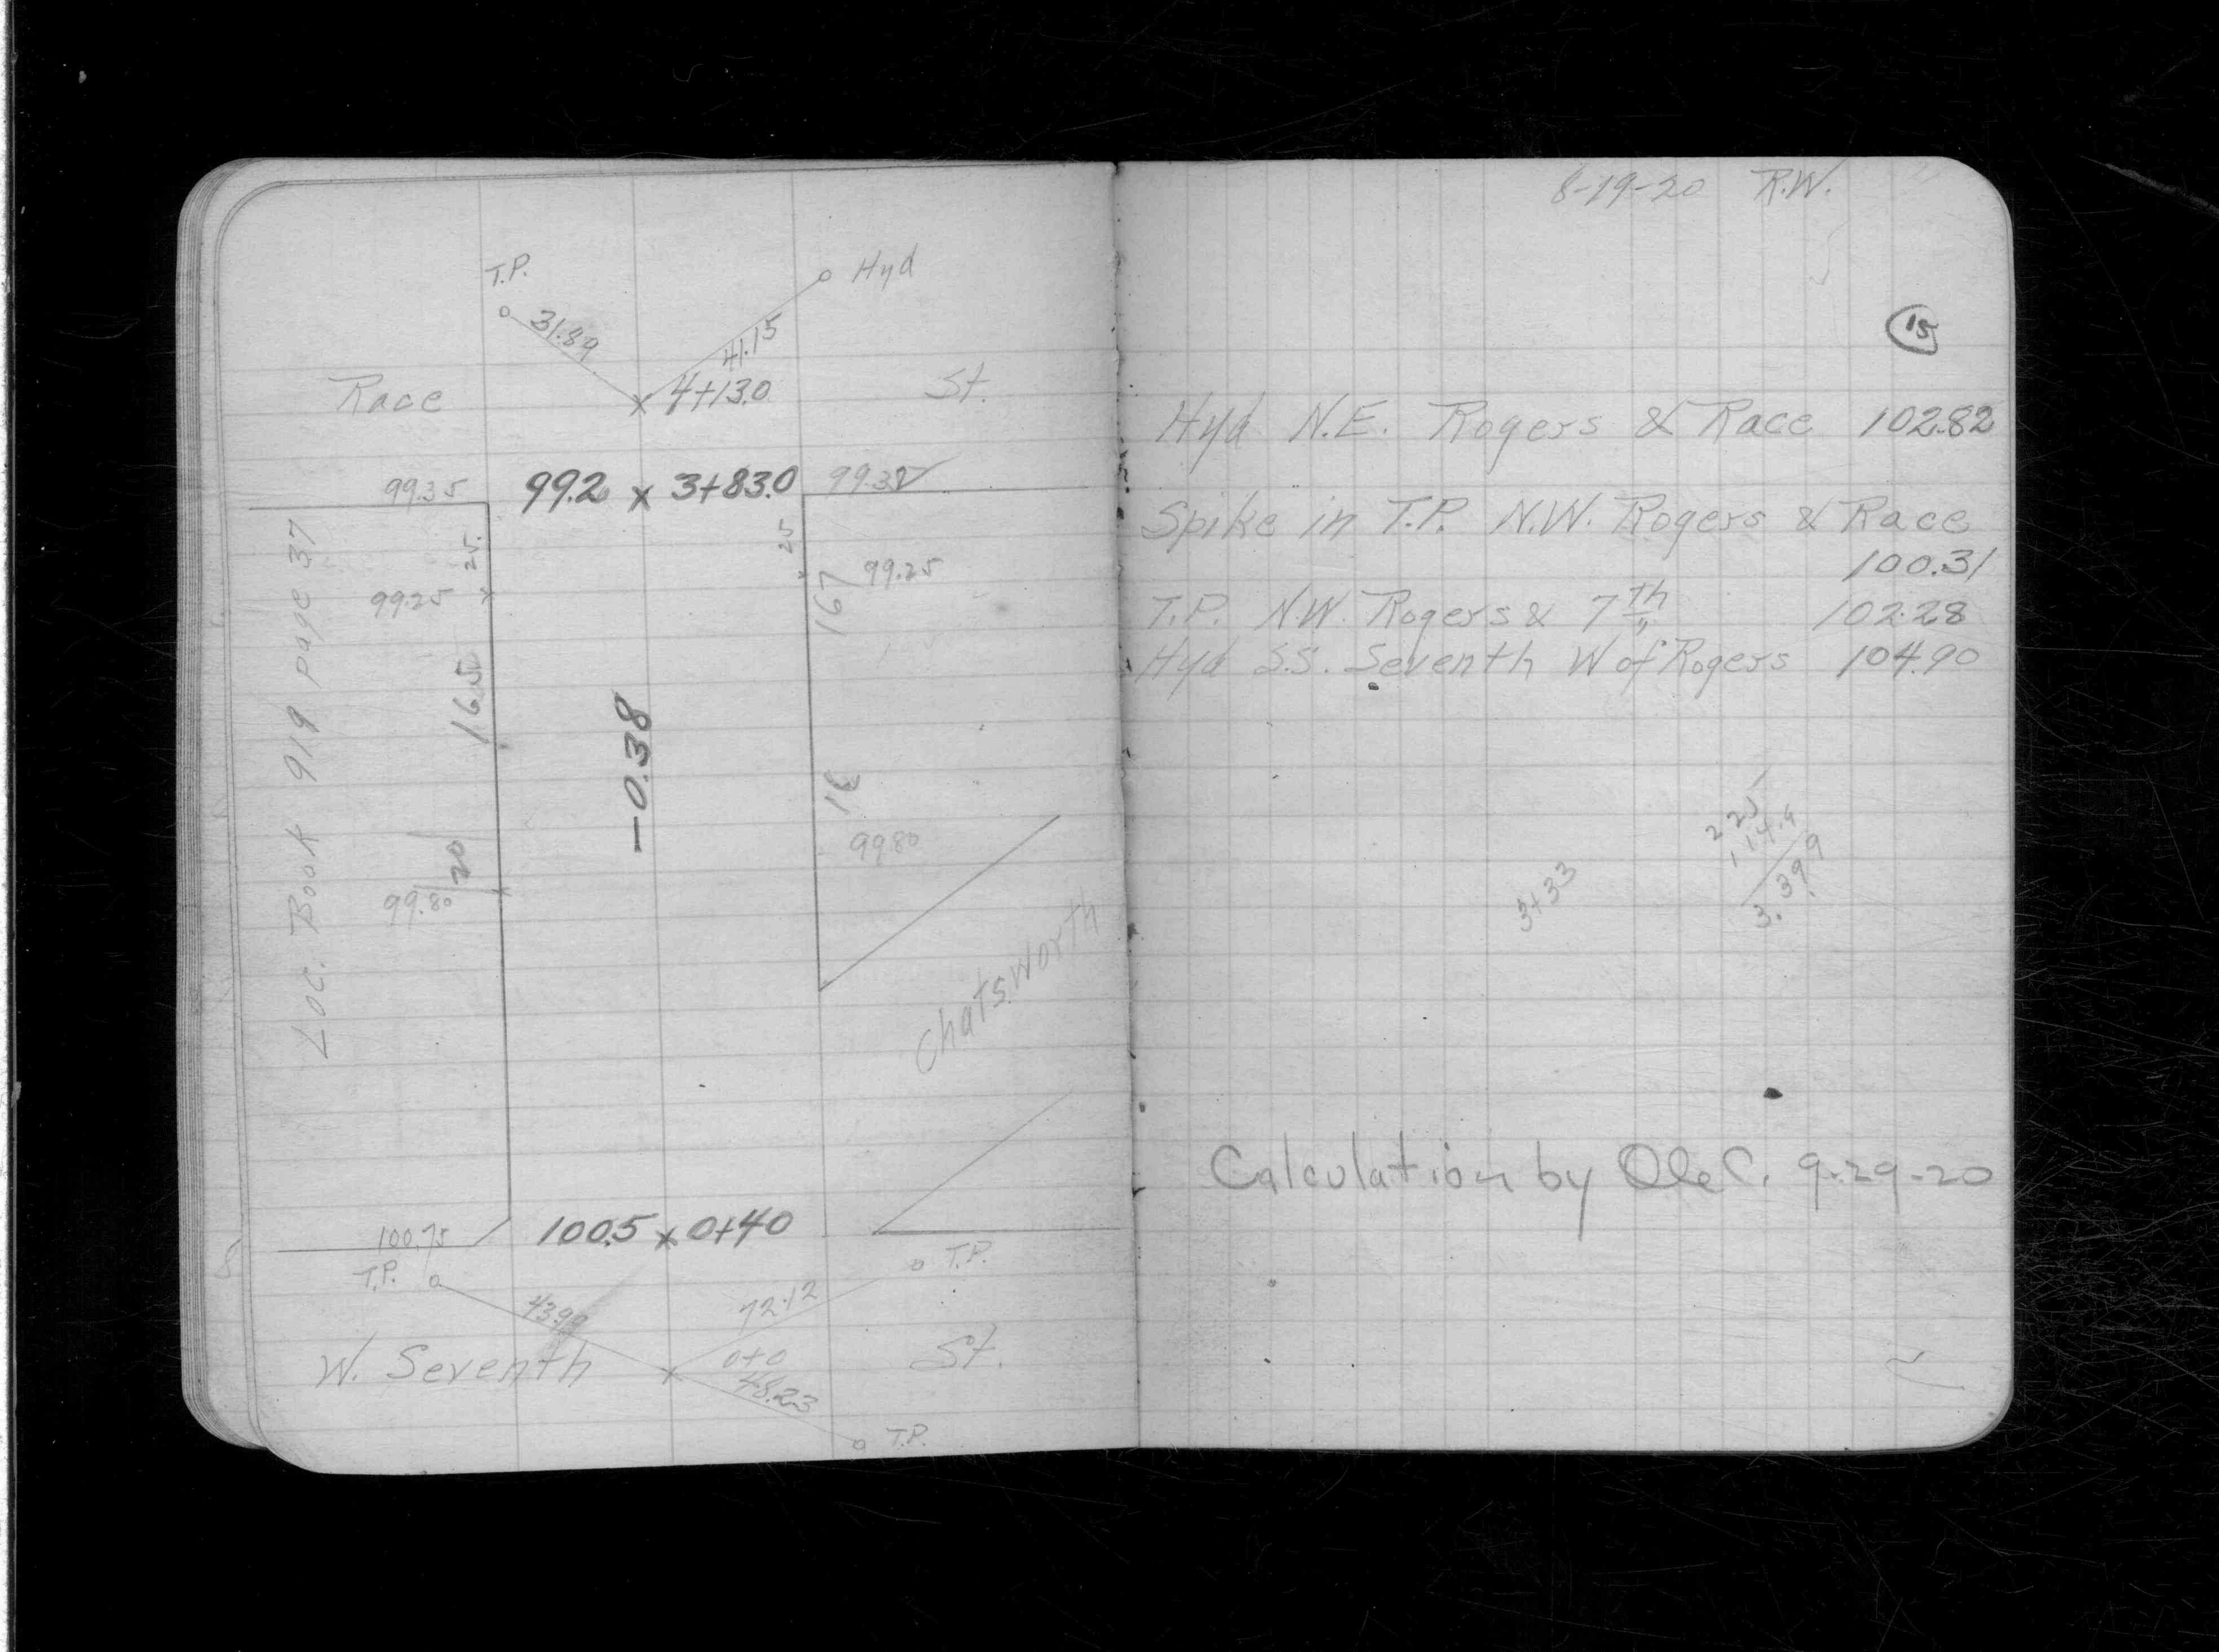 T.P.
Hyd
31.89
41.15
Race
4+13.0
St.
99.35
99.2 x 3+83.0
25
25
99.25
99.25
167
Loc. Book 919 page 37
165
-0.38
18
20
99.80
99.80
Chatsworth
100.75
100.5 x 0+40
T.P.
T.P.
72.12
W. Seventh
0+0
St.
48.23
T.P.
8-19-20 R.W.
15
Hyd N.E. Rogers & Race 102.82
Spike in T.P. N.W. Rogers & Race
100.31
T.P. N.W. Rogers & 7th 102.28
Hyd S.S. Seventh W of Rogers 104.90
225
114.9
3.399
3+33
Calculation by 9-29-20